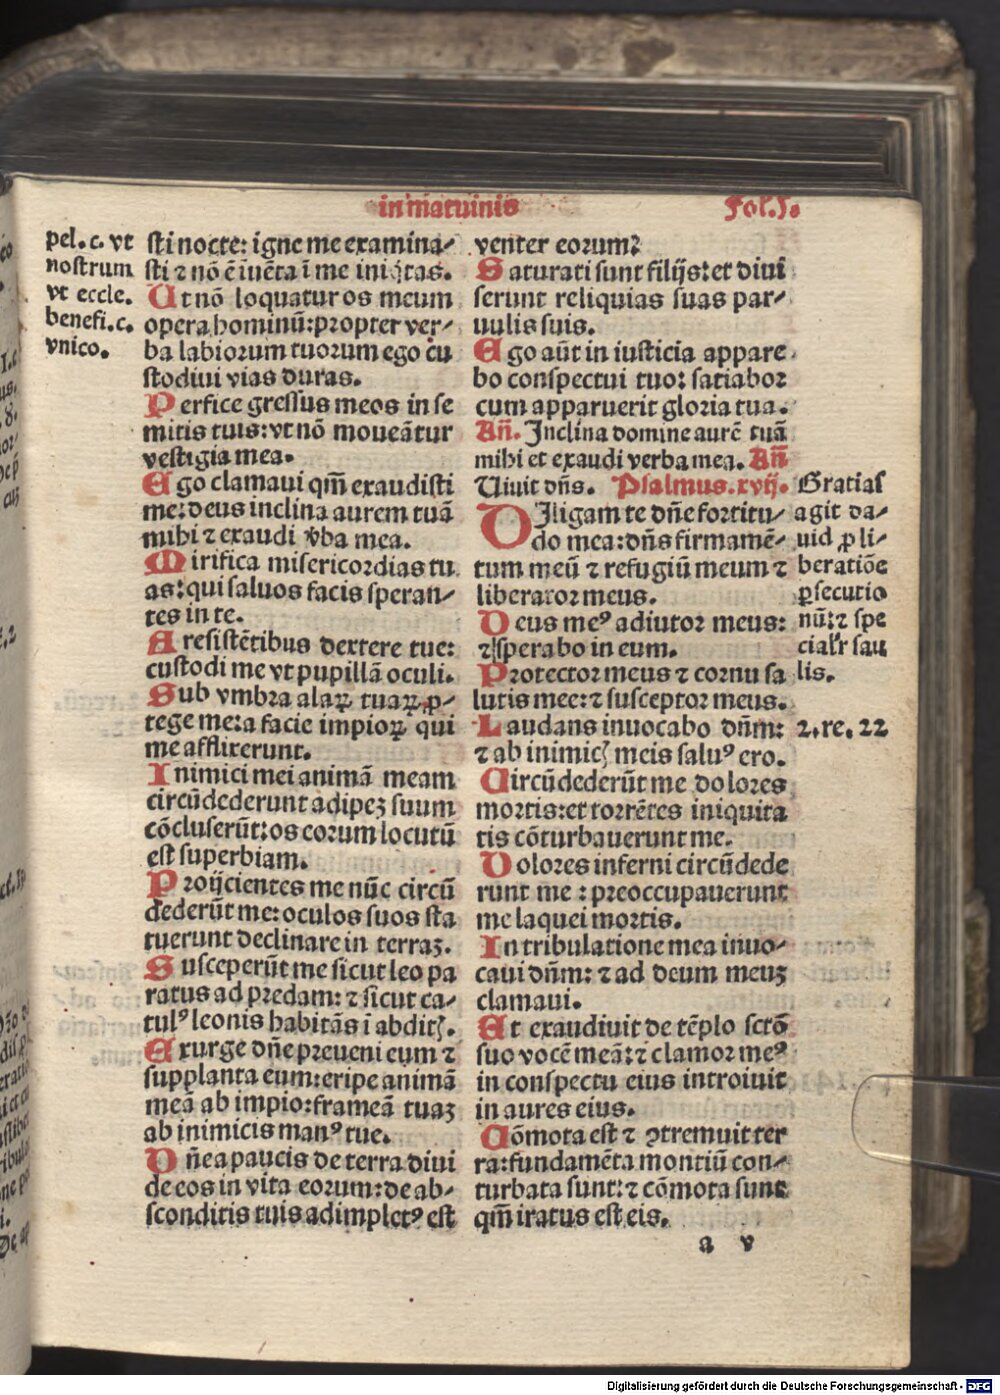 in matutinis
Fol. I.
pel. c. vt
nostrum
vt eccle.
benefi. c.
vnico.
sti nocte: igne me examina⸗
sti ⁊ nō ē iuēta ī me iniq̇tas.
Ut nō loquatur os meum
opera hominū: propter ver⸗
ba labiorum tuorum ego cu
stodiui vias duras.
Perfice gressus meos in se
mitis tuis: vt nō moueātur
vestigia mea.
Ego clamaui qm̄ exaudisti
me: deus inclina aurem tuā
mihi ⁊ exaudi v̄ba mea.
Mirifica misericordias tu
as: qui saluos facis speran⸗
tes in te.
A resistētibus dextere tue:
custodi me vt pupillā oculi.
Sub vmbra alaꝝ tuaꝝ ꝓ⸗
tege me: a facie impioꝝ qui
me afflixerunt.
Inimici mei animā meam
circūdederunt adipeꝫ suum
cōcluserūt: os eorum locutū
est superbiam.
Proijcientes me nūc circū
dederūt me: oculos suos sta
tuerunt declinare in terraꝫ.
Susceperūt me sicut leo pa
ratus ad predam: ⁊ sicut ca⸗
tulꝰ leonis habitās ī abditꝭ.
Exurge dn̄e preueni eum ⁊
supplanta eum: eripe animā
meā ab impio: frameā tuaꝫ
ab inimicis manꝰ tue.
Dn̄e a paucis de terra diui
de eos in vita eorum: de ab⸗
sconditis tuis adimpletꝰ est
venter eorum:
Saturati sunt filijs: et diui
serunt reliquias suas par⸗
uulis suis.
Ego aūt in iusticia appare
bo conspectui tuo: satiabor
cum apparuerit gloria tua.
An̄. Inclina domine aurē tuā
mihi et exaudi verba mea. An̄
Uiuit dn̄s. Psalmus. xvij.
DIligam te dn̄e fortitu⸗
do mea: dn̄s firmamē⸗
tum meū ⁊ refugiū meum ⁊
liberator meus.
Deus meꝰ adiutor meus:
⁊ sperabo in eum.
Protector meus ⁊ cornu sa
lutis mee: ⁊ susceptor meus.
Laudans inuocabo dn̄m:
⁊ ab inimicꝭ meis saluꝰ ero.
Circūdederūt me dolores
mortis: et torrētes iniquita
tis cōturbauerunt me.
Dolores inferni circūdede
runt me: preoccupauerunt
me laquei mortis.
In tribulatione mea inuo⸗
caui dn̄m: ⁊ ad deum meuꝫ
clamaui.
Et exaudiuit de tēplo sctō
suo vocē meā: ⁊ clamor meꝰ
in conspectu eius introiuit
in aures eius.
Cōmota est ⁊ ꝯtremuit ter
ra: fundamēta montiū con⸗
turbata sunt: ⁊ cōmota sunt
qm̄ iratus est eis.
Gratias
agit da⸗
uid ꝓ li⸗
beratiōe
ꝑsecutio
nū: ⁊ spe
cialr̄ sau
lis.
2. re. 22
a v
Digitalisierung gefördert durch die Deutsche Forschungsgemeinschaft - DFG